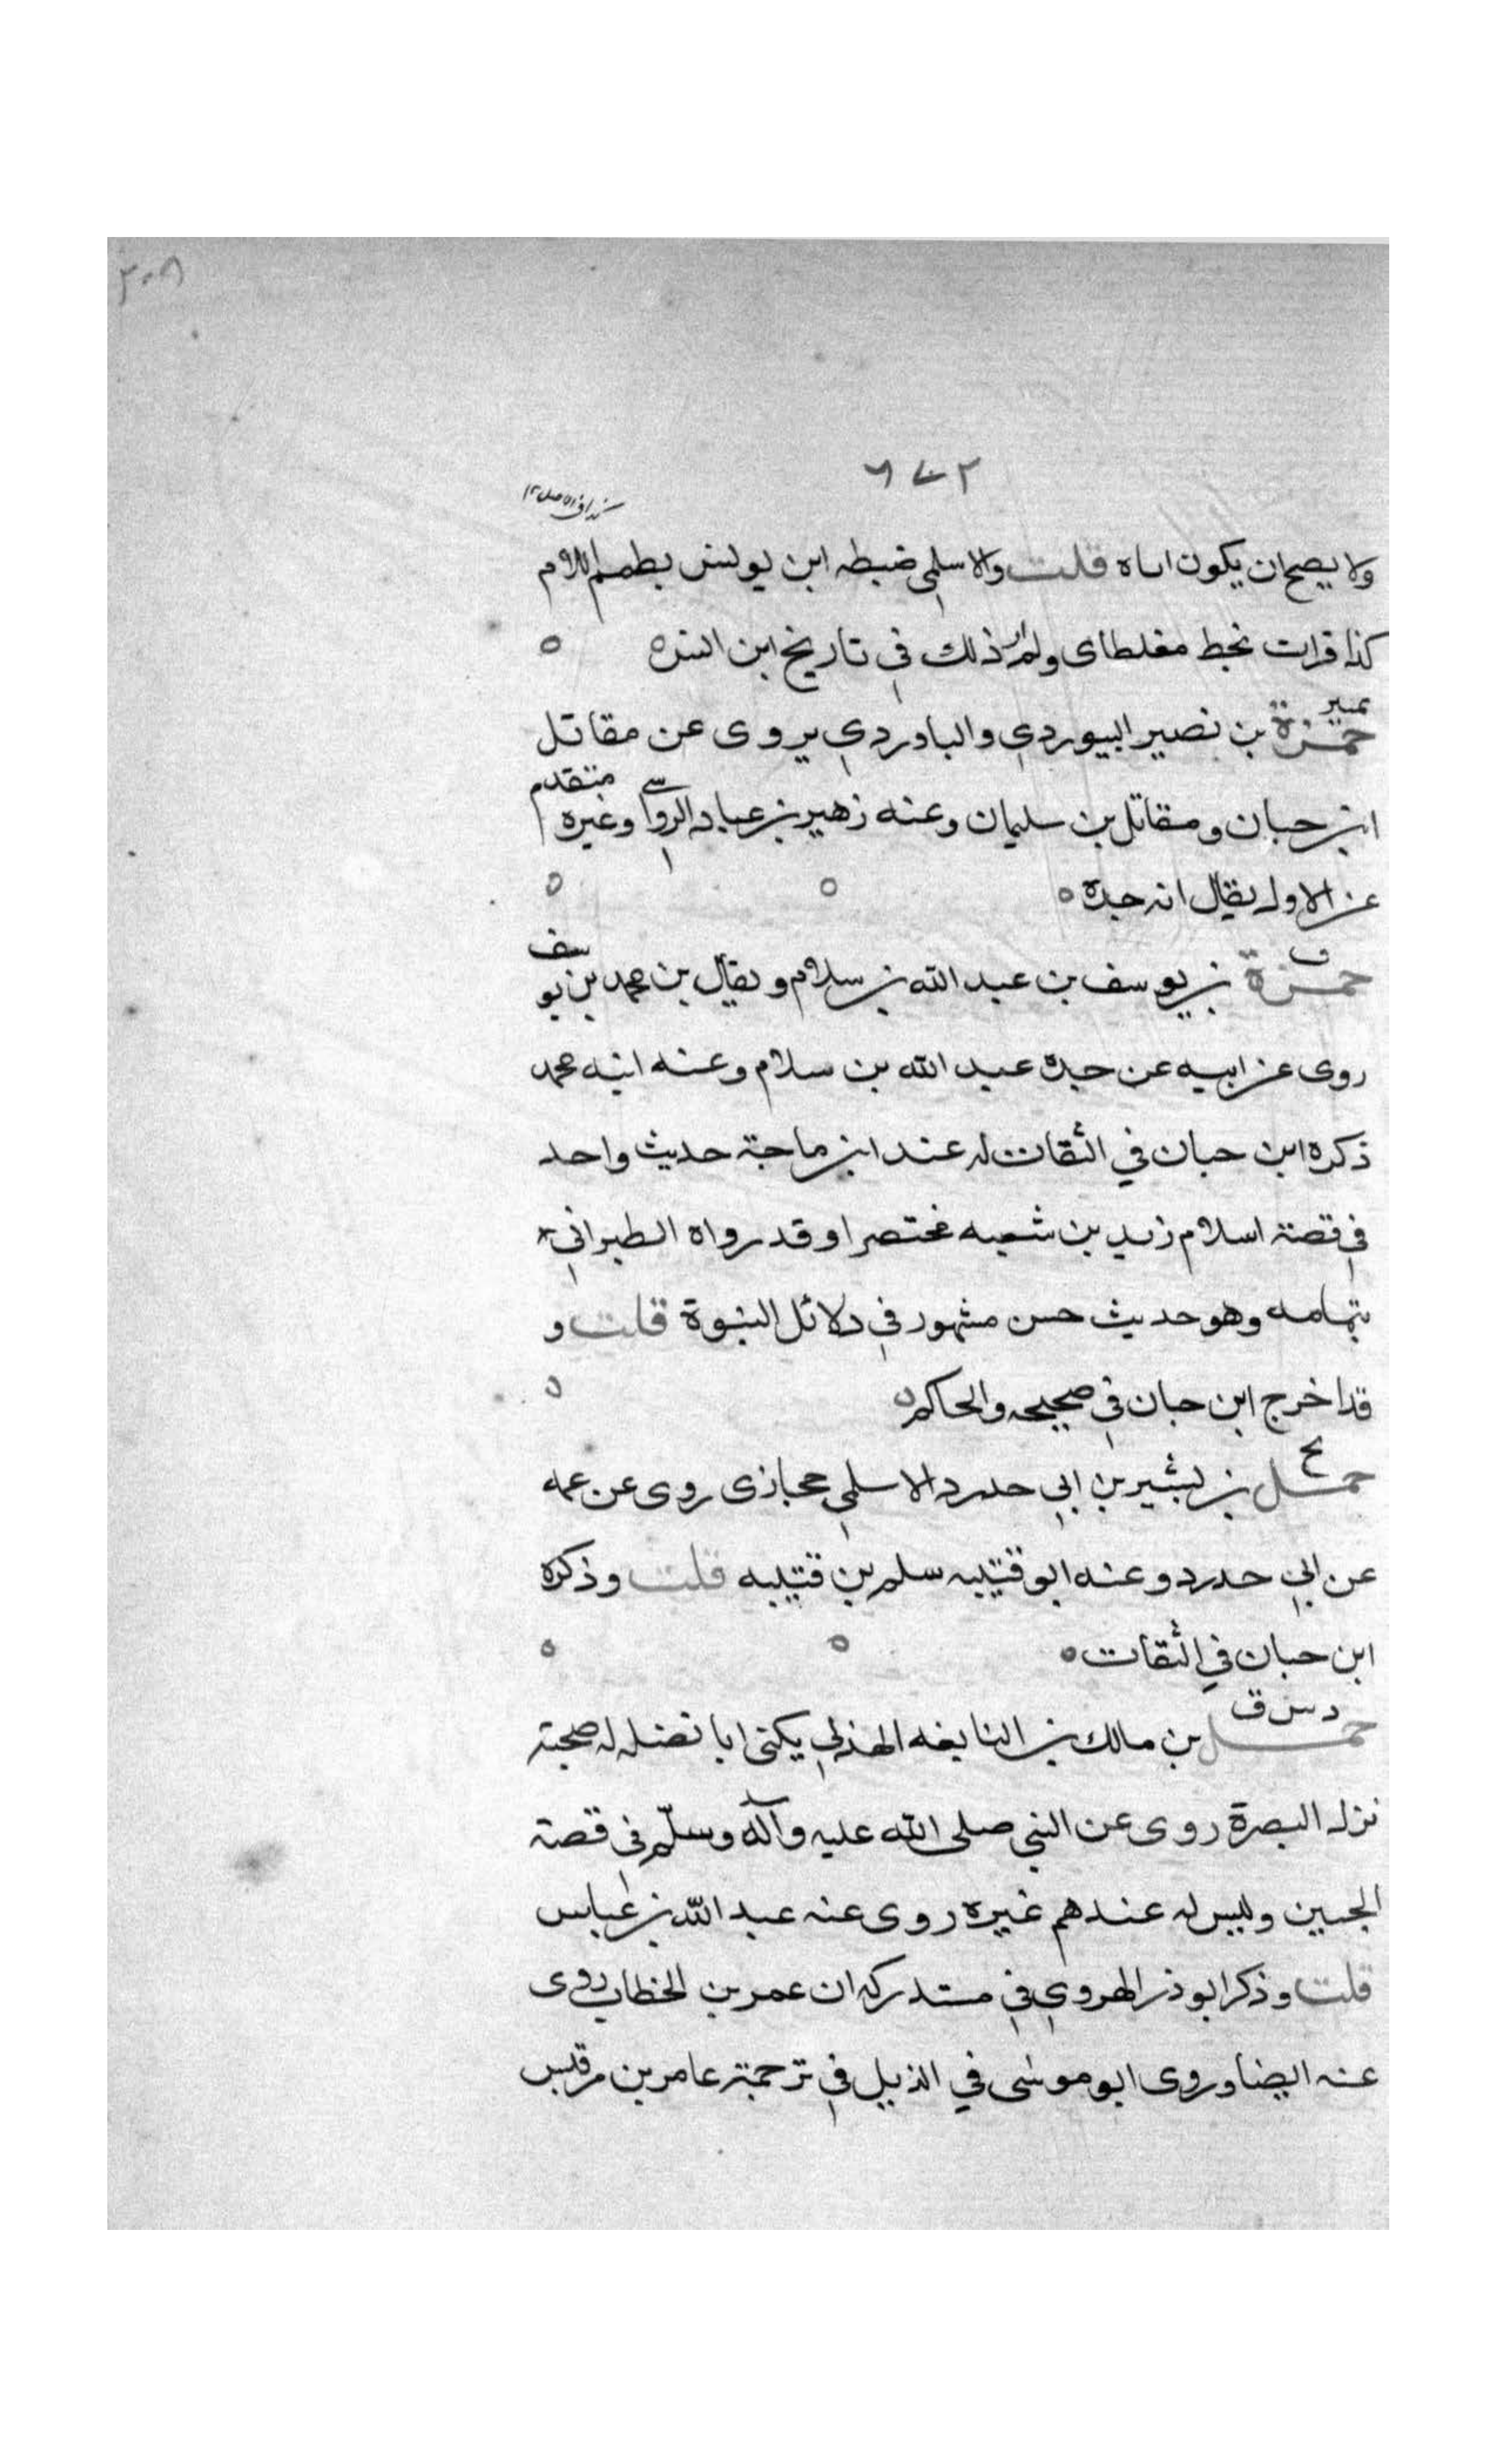 ٣٠٨
٦٤٢
ولا يصح ان يكون اباه قلت والاسلمي ضبطه ابن يونس بضم اللام
كذا قرات بخط مغلطاى ولم ار ذلك في تاريخ ابن
تمييز
حمزة بن نصير البيوردي والباوردي يروى عن مقاتل
ابن حبان ومقاتل بن سليمان وعنه زهير بن عباد الرواسي وغيره متقدم
عن الاول يقال انه جده
ق
حمزة بن يوسف بن عبد الله بن سلام ويقال بن محمد بن يوسف
روى عن ابيه عن جده عبد الله بن سلام وعنه ابنه محمد
ذكره ابن حبان في الثقات له عند ابن ماجة حديث واحد
في قصة اسلام زيد بن شعبه مختصرا وقد رواه الطبراني
بتمامه وهو حديث حسن مشهور في دلائل النبوة قلت و
قد اخرج ابن حبان في صحيحه والحاكم
بخ
حمل بن بشير بن ابي حدرد الاسلمي حجازى روى عن عمه
عن ابي حدرد وعنه ابو قتيبه سلم بن قتيبه قلت وذكره
ابن حبان في الثقات
د س ق
حمل بن مالك بن النابغه الهذلي يكنى ابا نضله له صحبة
نزل البصرة روى عن النبي صلى الله عليه وآله وسلم في قصة
الجنين وليس له عندهم غيره روى عنه عبد الله بن عباس
قلت وذكر ابو ذر الهروي في مستدركه ان عمر بن الخطاب روى
عنه ايضا وروى ابو موسى في الذيل في ترجمة عامر بن مرقس